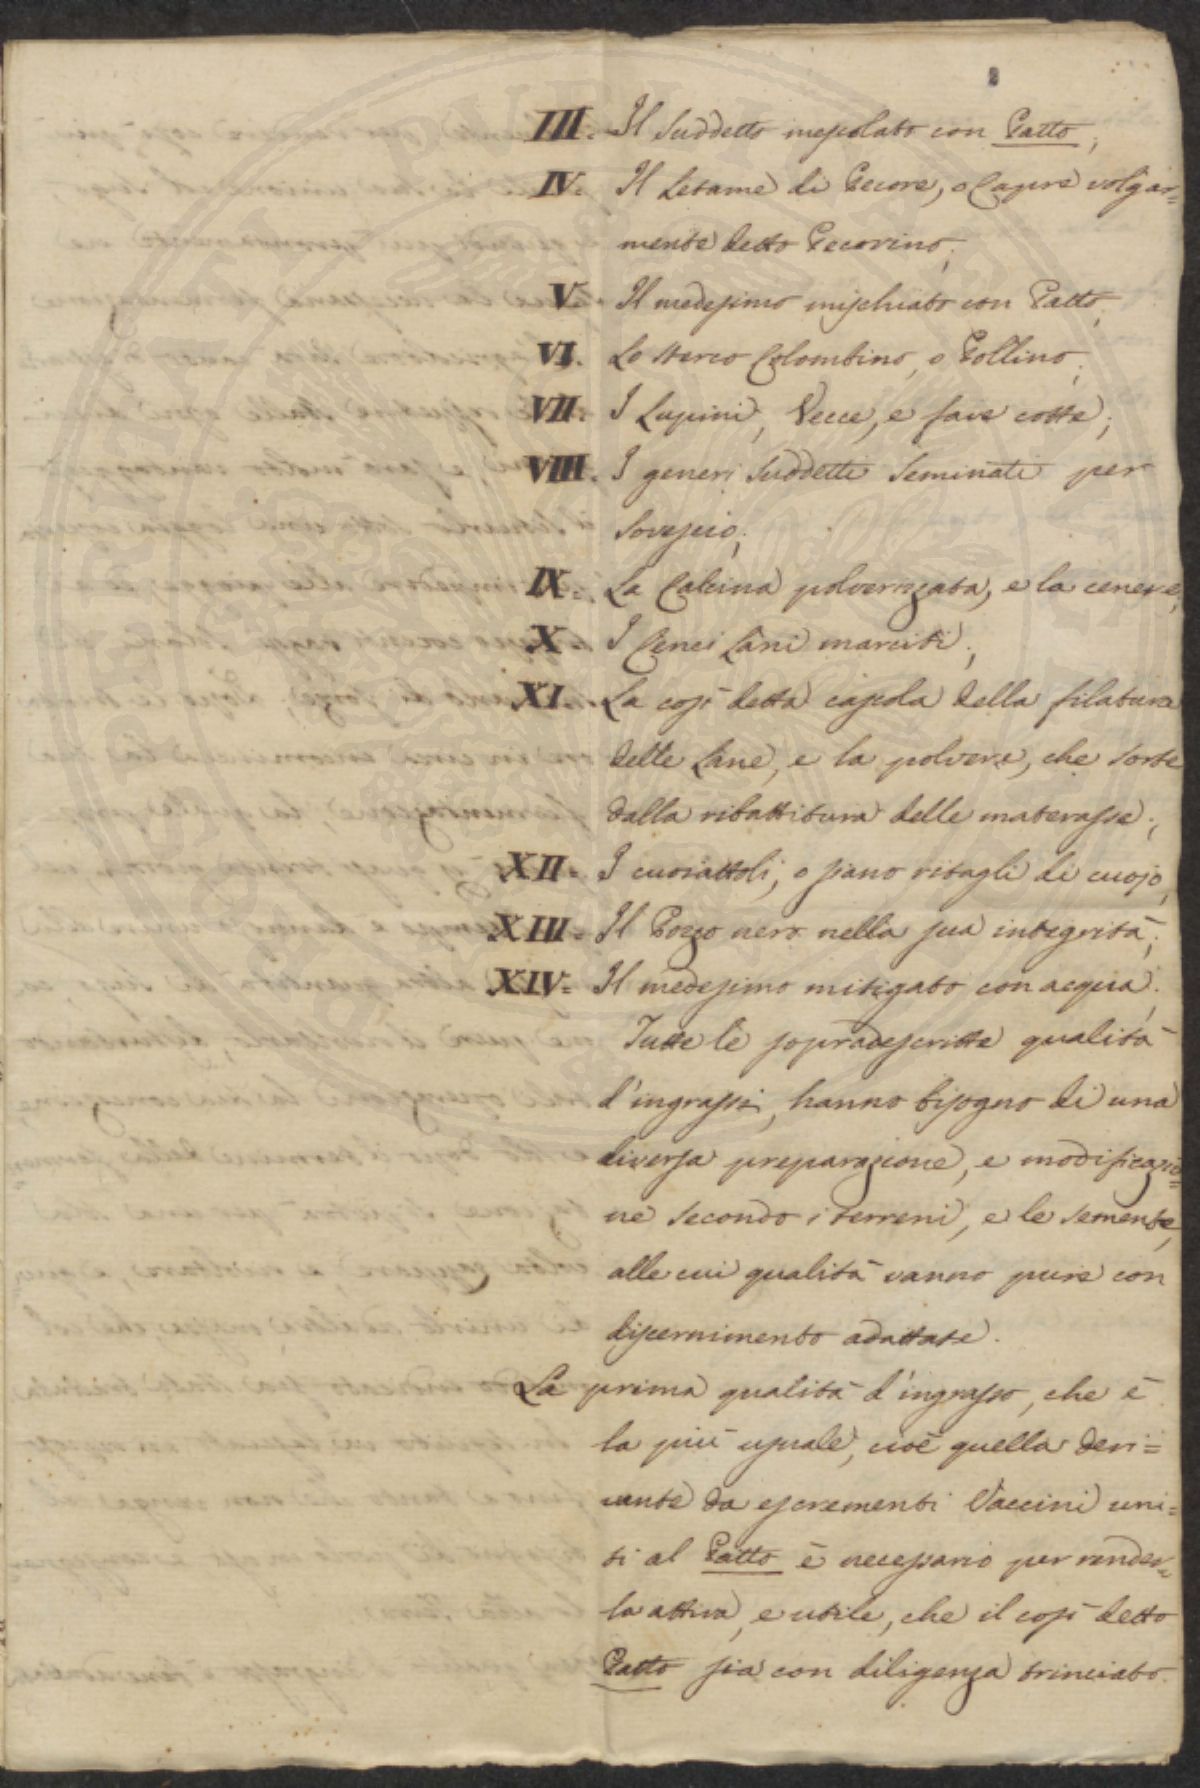 2
III. Il suddetto mescolato con Patto;
IV. Il Letame di Pecore, o Capre volgar=
mente detto Pecorino;
V. Il medesimo mischiato con Patto;
VI. Lo sterco Colombino, o Pollino;
VII. I Lupini, Vecce, e fave cotte;
VIII. I generi suddetti seminati per
sovescio;
IX. La Calcina polverizzata, e la cenere;
X. I Cenci Lani marciti;
XI. La così detta cascola della filatura
delle Lane, e la polvere, che sorte
dalla ribattitura delle materasse;
XII. I cuoiattoli, o siano ritagli di cuojo;
XIII. Il Pozzo nero nella sua integrità;
XIV. Il medesimo mitigato con acqua.
Tutte le sopradescritte qualità
d'ingrassi, hanno bisogno di una
diversa preparazione, e modificazio=
ne secondo i terreni, e le semente,
alle cui qualità vanno pure con
discernimento adattate.
La prima qualità d'ingrasso, che è
la più usuale, cioè quella deri=
vante da escrementi Vaccini uni=
ti al Patto è necessario per render=
la attiva, e utile, che il così detto
Patto sia con diligenza trinciato.